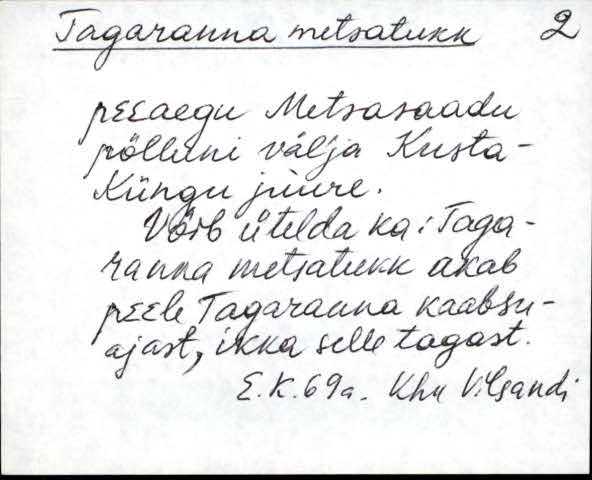 Tagaranna metsatukk 2
peeaegu Metsasaadu
põlluni välja Kusta-
Küngu juure.
Võib ütelda ka: Taga-
ranna metsatukk akab
peele Tagaranna kaabsu-
ajast, ikka selle tagast.
E.K. 69a. Khk Vilsandi